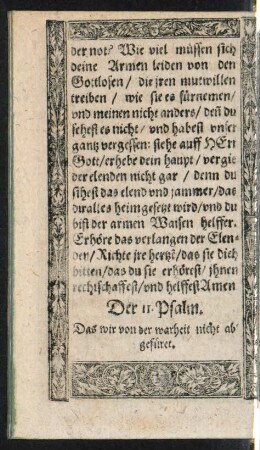 der not? Wie viel müssen sich
deine Armen leiden von den
Gottlosen/ die jren mutwillen
treiben/ wie sie es fürnemen/
vnd meinen nicht anders/ deñ du
sehest es nicht/ vnd habest vnser
gantz vergessen: stehe auff HErr
Gott/ erhebe dein haupt/ vergis
der elenden nicht gar/ denn du
sihest das elend vnd jammer/ das
dir alles heimgesetzt wird/ vnd du
bist der armen Waisen helffer.
Erhöre das verlangen der Elen-
den/ Richte jre hertzẽ/ das sie dich
bitten/ das du sie erhörest/ jhnen
rechtschaffest/ vnd helffest Amen
Der 11. Psalm.
Das wir von der warheit nicht ab
gefüret.